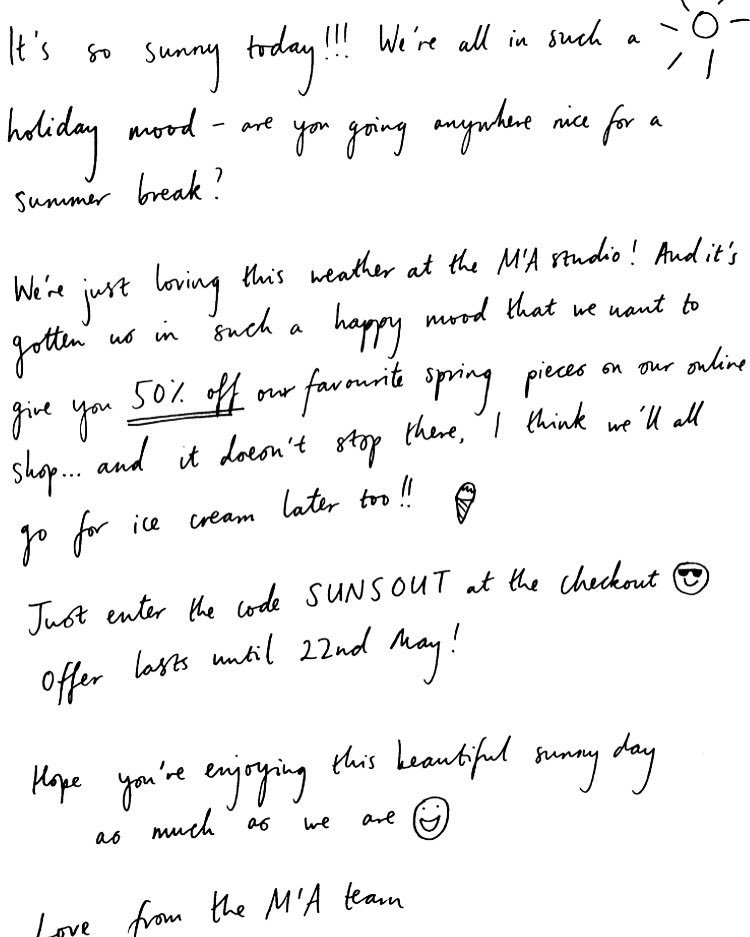 It's so sunny today!!! We're all in such a
holiday mood - are you going anywhere nice for a
summer break?
We're just loving this weather at the M'A studio! And it's
gotten us in such a happy mood that we want to
give you 50% off our favourite spring pieces on our online
shop... and it doesn't stop there, I think we'll all
go for ice cream later too!!
Just enter the code SUNSOUT at the checkout
Offer lasts until 22nd May!
Hope you're enjoying this beautiful sunny day
as much as we are
Love from the M'A team